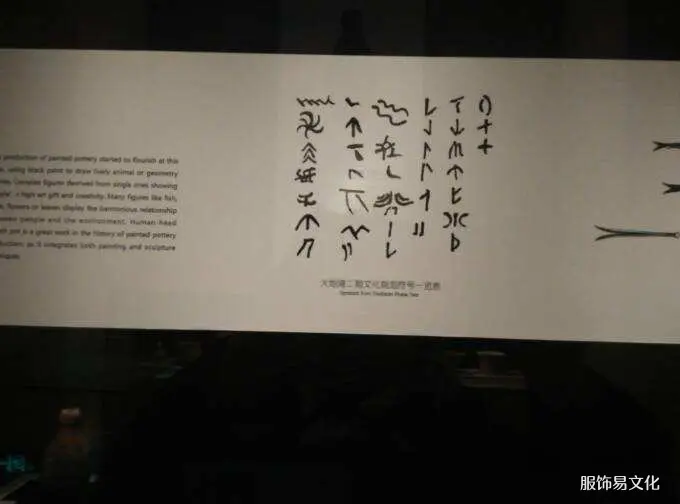 production of painted pottery started to flourish at this
using black paint to draw lively animal or geometry
Complex figures derived from single ones showing
high art gift and creativity. Many figures like fish,
flowers or leaves display the harmonious relationship
people and the environment. Human head
pot is a great work in the history of painted pottery
as it integrates both painting and sculpture
大地湾二期文化刻划符号一览表
Symbols from Dadiwan Phase Two
服饰易文化